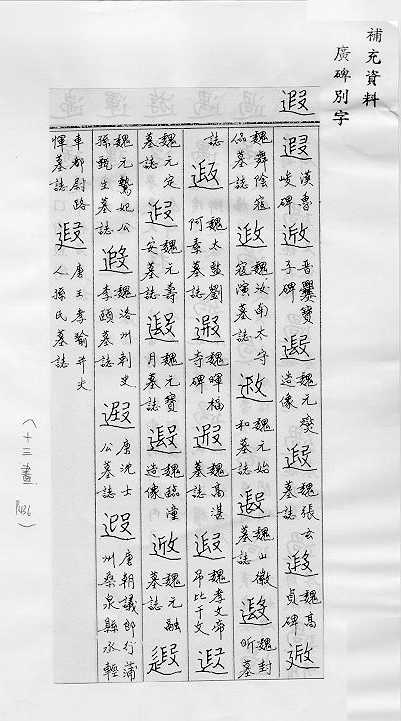 補充資料
廣碑別字
遐
遐 漢魯峻碑 遐 晉爨寶子碑 遐 魏元燮造像 遐 魏張玄墓誌 遐 魏高貞碑 遐
魏舞陰寇侃墓誌 遐 魏汝南太守寇演墓誌 遐 魏元始和墓誌 遐 魏山徽墓誌 遐 魏封昕墓
誌 遐 魏太鼓劉阿素墓誌 遐 魏暉福寺碑 遐 魏高湛墓誌 遐 魏孝文帝弔比干文 遐
魏元定墓誌 遐 魏元壽安墓誌 遐 魏元寶月墓誌 遐 魏臨潼造像 遐 魏元融墓誌 遐
魏元騖妃公孫甑生墓誌 遐 魏洛州刺史李頤墓誌 遐 唐沈士公墓誌 遐 唐朝議郎行蒲州桑泉縣丞輕
車都尉路惲墓誌 遐 唐王孝瑜并夫人孫氏墓誌
(十三畫)
P436